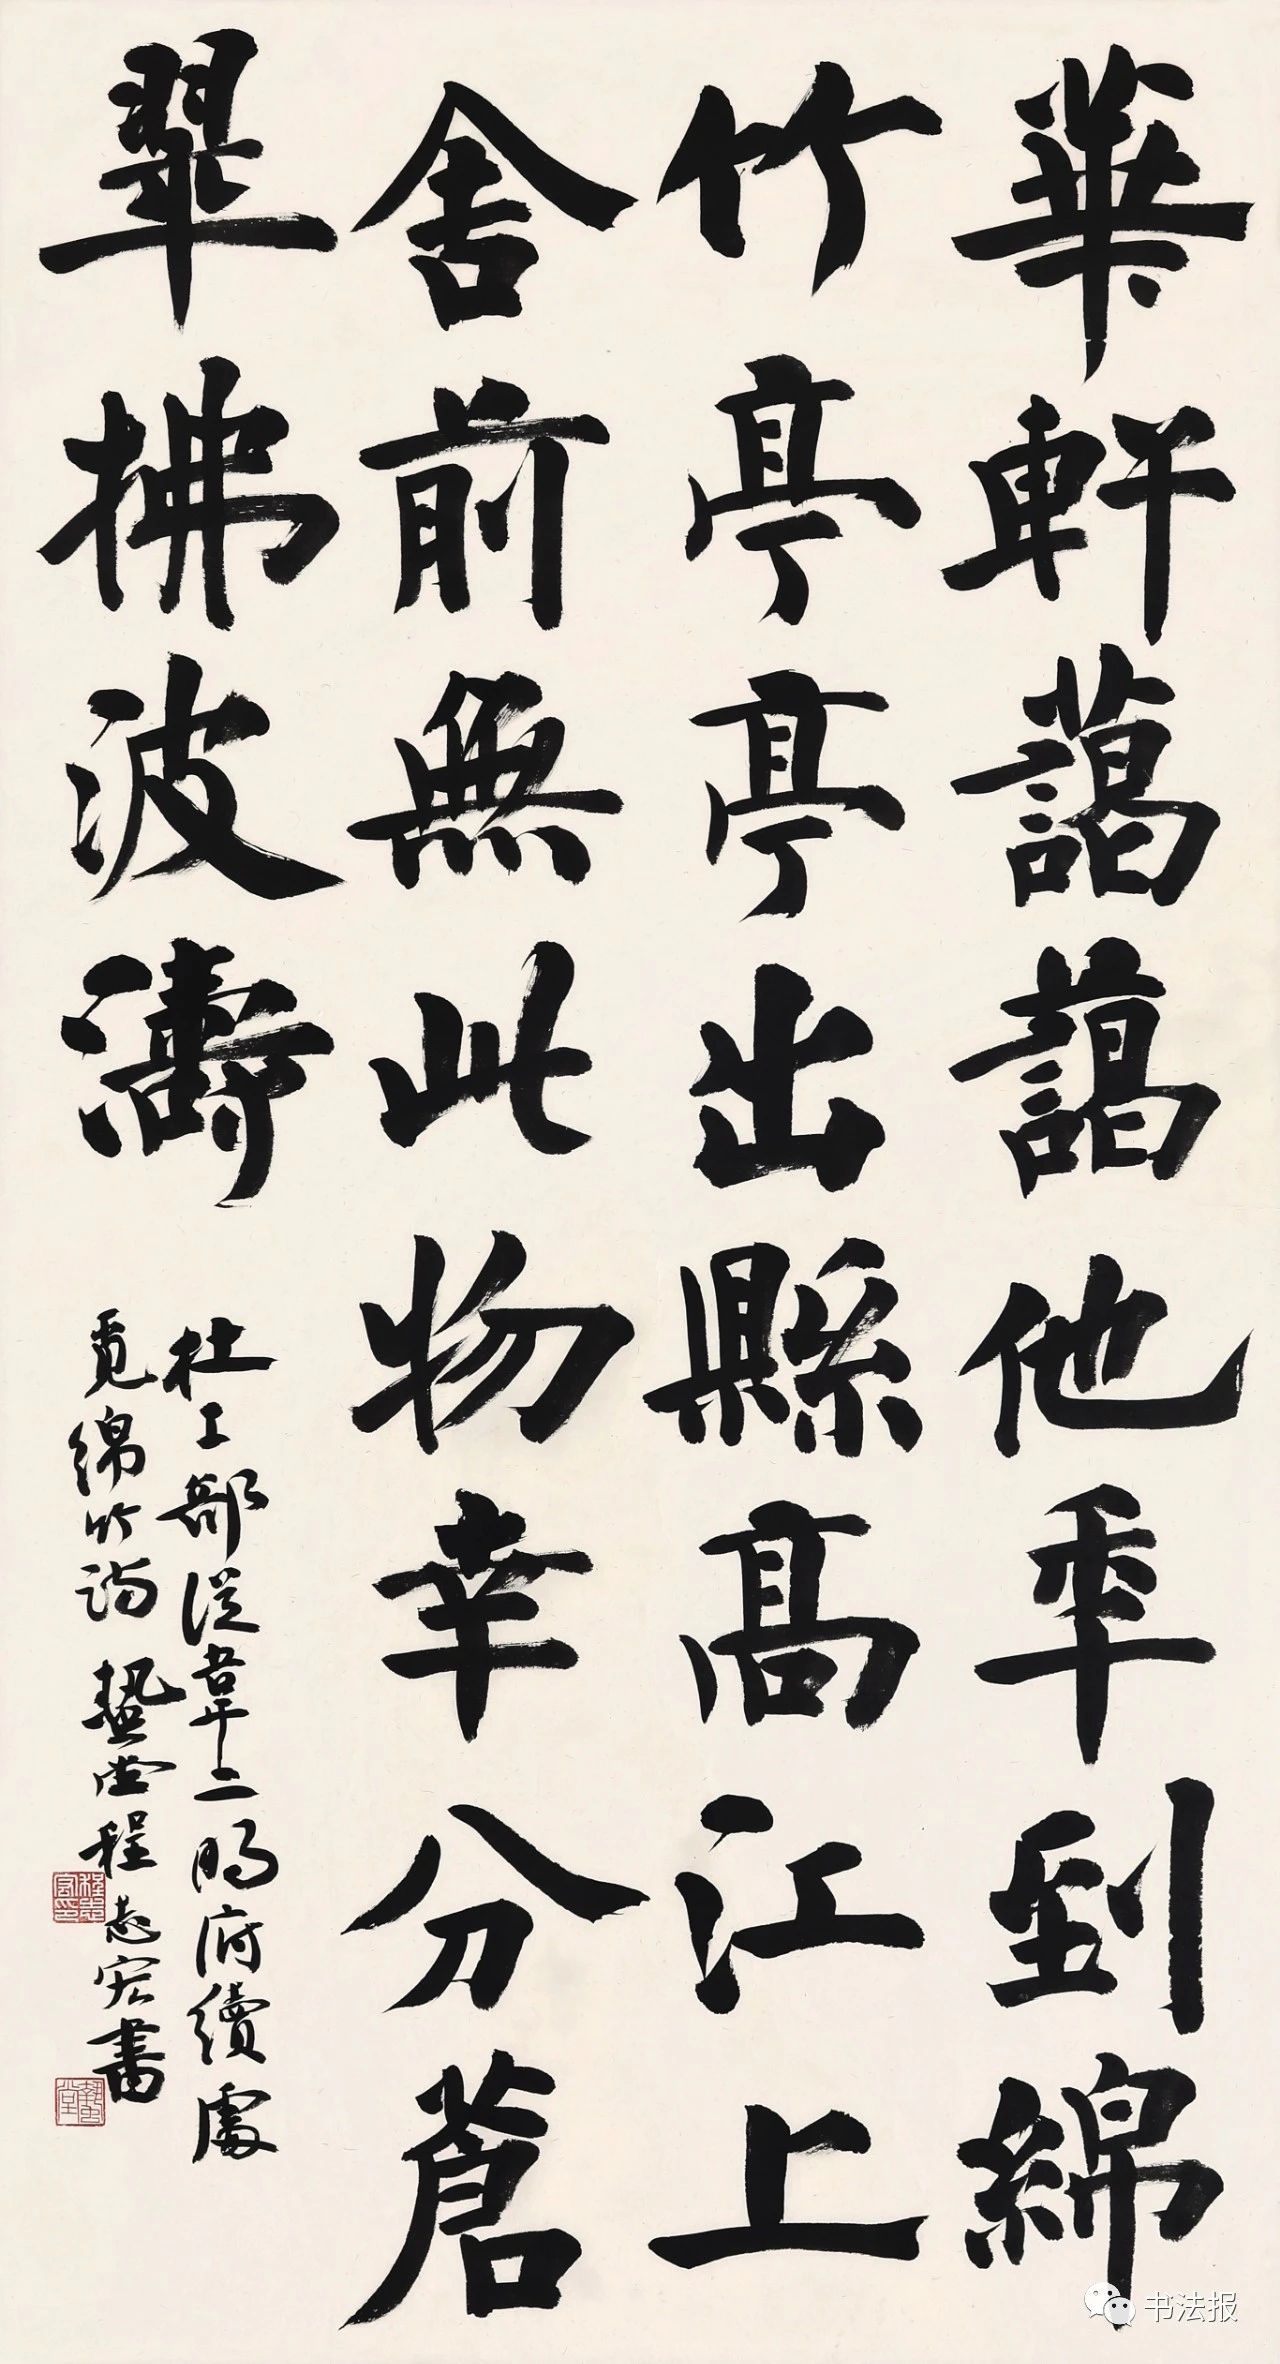 華軒藹藹他年到綿
竹亭亭出縣高江上
舍前無此物幸分蒼
翠拂波濤
杜工部從韋二明府續處
覓綿竹詩 蟄堂程志宏書
程志宏印
蟄堂
书法报